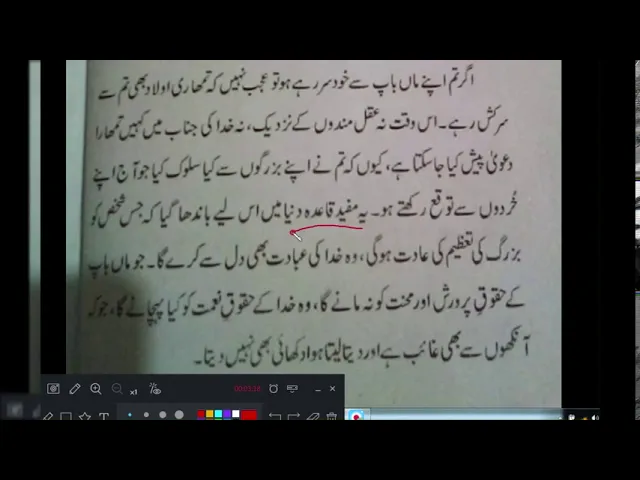 اگر تم اپنے ماں باپ سے خود سر رہے ہو تو عجب نہیں کہ تمھاری اولاد بھی تم سے
سرکش رہے۔ اس وقت نہ عقل مندوں کے نزدیک، نہ خدا کی جناب میں کہیں تمھارا
دعویٰ پیش کیا جا سکتا ہے، کیوں کہ تم نے اپنے بزرگوں سے کیا سلوک کیا جو آج اپنے
خُردوں سے توقع رکھتے ہو۔ یہ مفید قاعدہ دنیا میں اس لیے باندھا گیا کہ جس شخص کو
بزرگ کی تعظیم کی عادت ہوگی، وہ خدا کی عبادت بھی دل سے کرے گا۔ جو ماں باپ
کے حقوقِ پرورش اور محنت کو نہ مانے گا، وہ خدا کے حقوقِ نعمت کو کیا پہچانے گا، جو کہ
آنکھوں سے بھی غائب ہے اور دیتا لیتا ہوا دکھائی بھی نہیں دیتا۔
x1
T